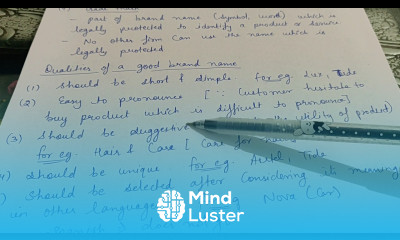 - part of brand name (symbol, word) which is
legally protected to identify a product or service
- No other firm can use the name which is
legally protected
Qualities of a good brand name
(1) Should be short & simple for eg. Lux, Tide
(2) Easy to pronounce [∵ Customer hesitate to
buy product which is difficult to pronounce]
(3) Should be suggestive utility of product)
for eg. Hair & Care [Care for
should be unique for eg. Ariel, Tide
should be selected after considering its meaning
in other languages Nova (Car)
Mind
Luster